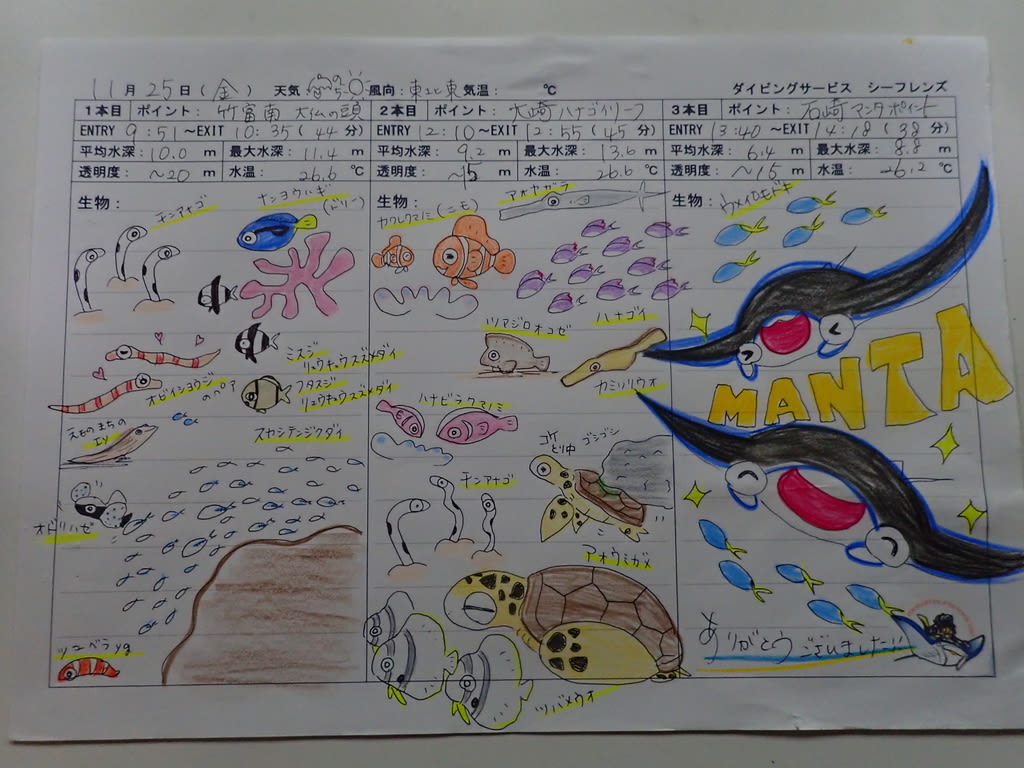 11月25日(金) 天気 風向:東北東 気温: ℃ ダイビングサービス シーフレンズ
1本目 ポイント: 竹富南 大仏の頭
ENTRY 9:51~EXIT 10:35(44分)
平均水深: 10.0 m 最大水深: 11.4 m
透明度: ~20 m 水温: 26.6 ℃
生物:
チンアナゴ
ナンヨウハギ
(ドリー)
ミスジ
リュウキュウスズメダイ
オビイシヨウジ
のペア
フタスジ
リュウキュウスズメダイ
スカシテンジクダイ
エソ
オドリハゼ
ツユベラyg
2本目 ポイント: 大崎ハナゴイリーフ
ENTRY 12:10~EXIT 12:55(45分)
平均水深: 9.2 m 最大水深: 13.6 m
透明度: ~15 m 水温: 26.6 ℃
生物:
アオヤガラ
カクレクマノミ(ニモ)
ハナゴイ
ツマジロオコゼ
カミソリウオ
ハナビラクマノミ
コケ
とり中
ゴシゴシ
チンアナゴ
アオウミガメ
ツバメウオ
3本目 ポイント: 石崎マンタポイント
ENTRY 13:40~EXIT 14:18(38分)
平均水深: 6.4 m 最大水深: 8.8 m
透明度: ~15 m 水温: 26.2 ℃
生物:
ウメイロモドキ
MANTA
ありがとうございました!!